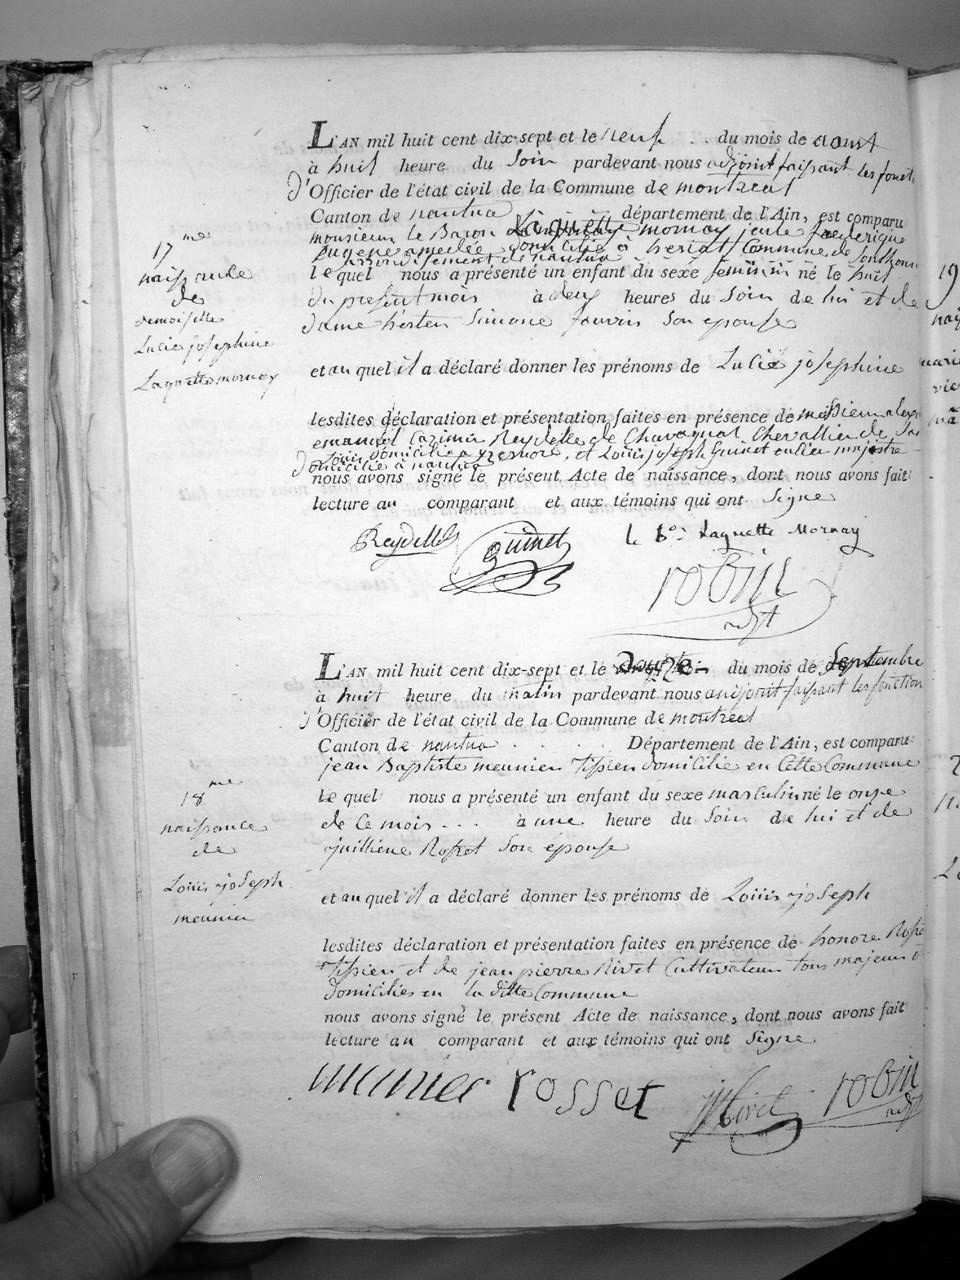 L'AN mil huit cent dix-sept et le neuf .. du mois de aoust
à huit heure du Soir pardevant nous adjoint faisant les fonct.
d'Officier de l'état civil de la Commune de montreal
Canton de nantua département de l'Ain, est comparu
monsieur le Baron Laguette mornay jule frederique
Eugene amedée domicilié à hériat Commune de
arrondissement de nantua
lequel nous a présenté un enfant du sexe feminin né le huit
du present mois à deux heures du Soir de lui et de
dame hester Simone Son épouse
17me
naissance
de
demoiselle
Lucie josephine
Laguette mornay
et auquel il a déclaré donner les prénoms de Lucie josephine
lesdites déclaration et présentation faites en présence de
emanuel Cazimir Reydellet de Chavagnat Chevallier de
Louis domicilié a et Louis joseph Guinet
domicilié à nantua
nous avons signé le présent Acte de naissance, dont nous avons fait
lecture au comparant et aux témoins qui ont Signe
Reydellet Guinet le Bon Laguette Mornay
robin
adjt
L'AN mil huit cent dix-sept et le douze du mois de Septembre
à huit heure du matin pardevant nous adjoint faisant les fonction
d'Officier de l'état civil de la Commune de montreal
Canton de nantua . . . . . Département de l'Ain, est comparu
jean Baptiste meunier tissier domicilié en Cette Commune
Le quel nous a présenté un enfant du sexe masculin né le onze
de Ce mois ... à une heure du Soir de lui et de
juilliene Rosset Son épouse
18me
naissance
de
Louis joseph
meunier
et auquel il a déclaré donner les prénoms de Louis joseph
lesdites déclaration et présentation faites en présence de honore
tissier et de jean pierre Rivet Cultivateur tous majeur
domiciliés en la ditte Commune
nous avons signé le présent Acte de naissance, dont nous avons fait
lecture au comparant et aux témoins qui ont Signe
meunier rosset Rivet robin
adjt